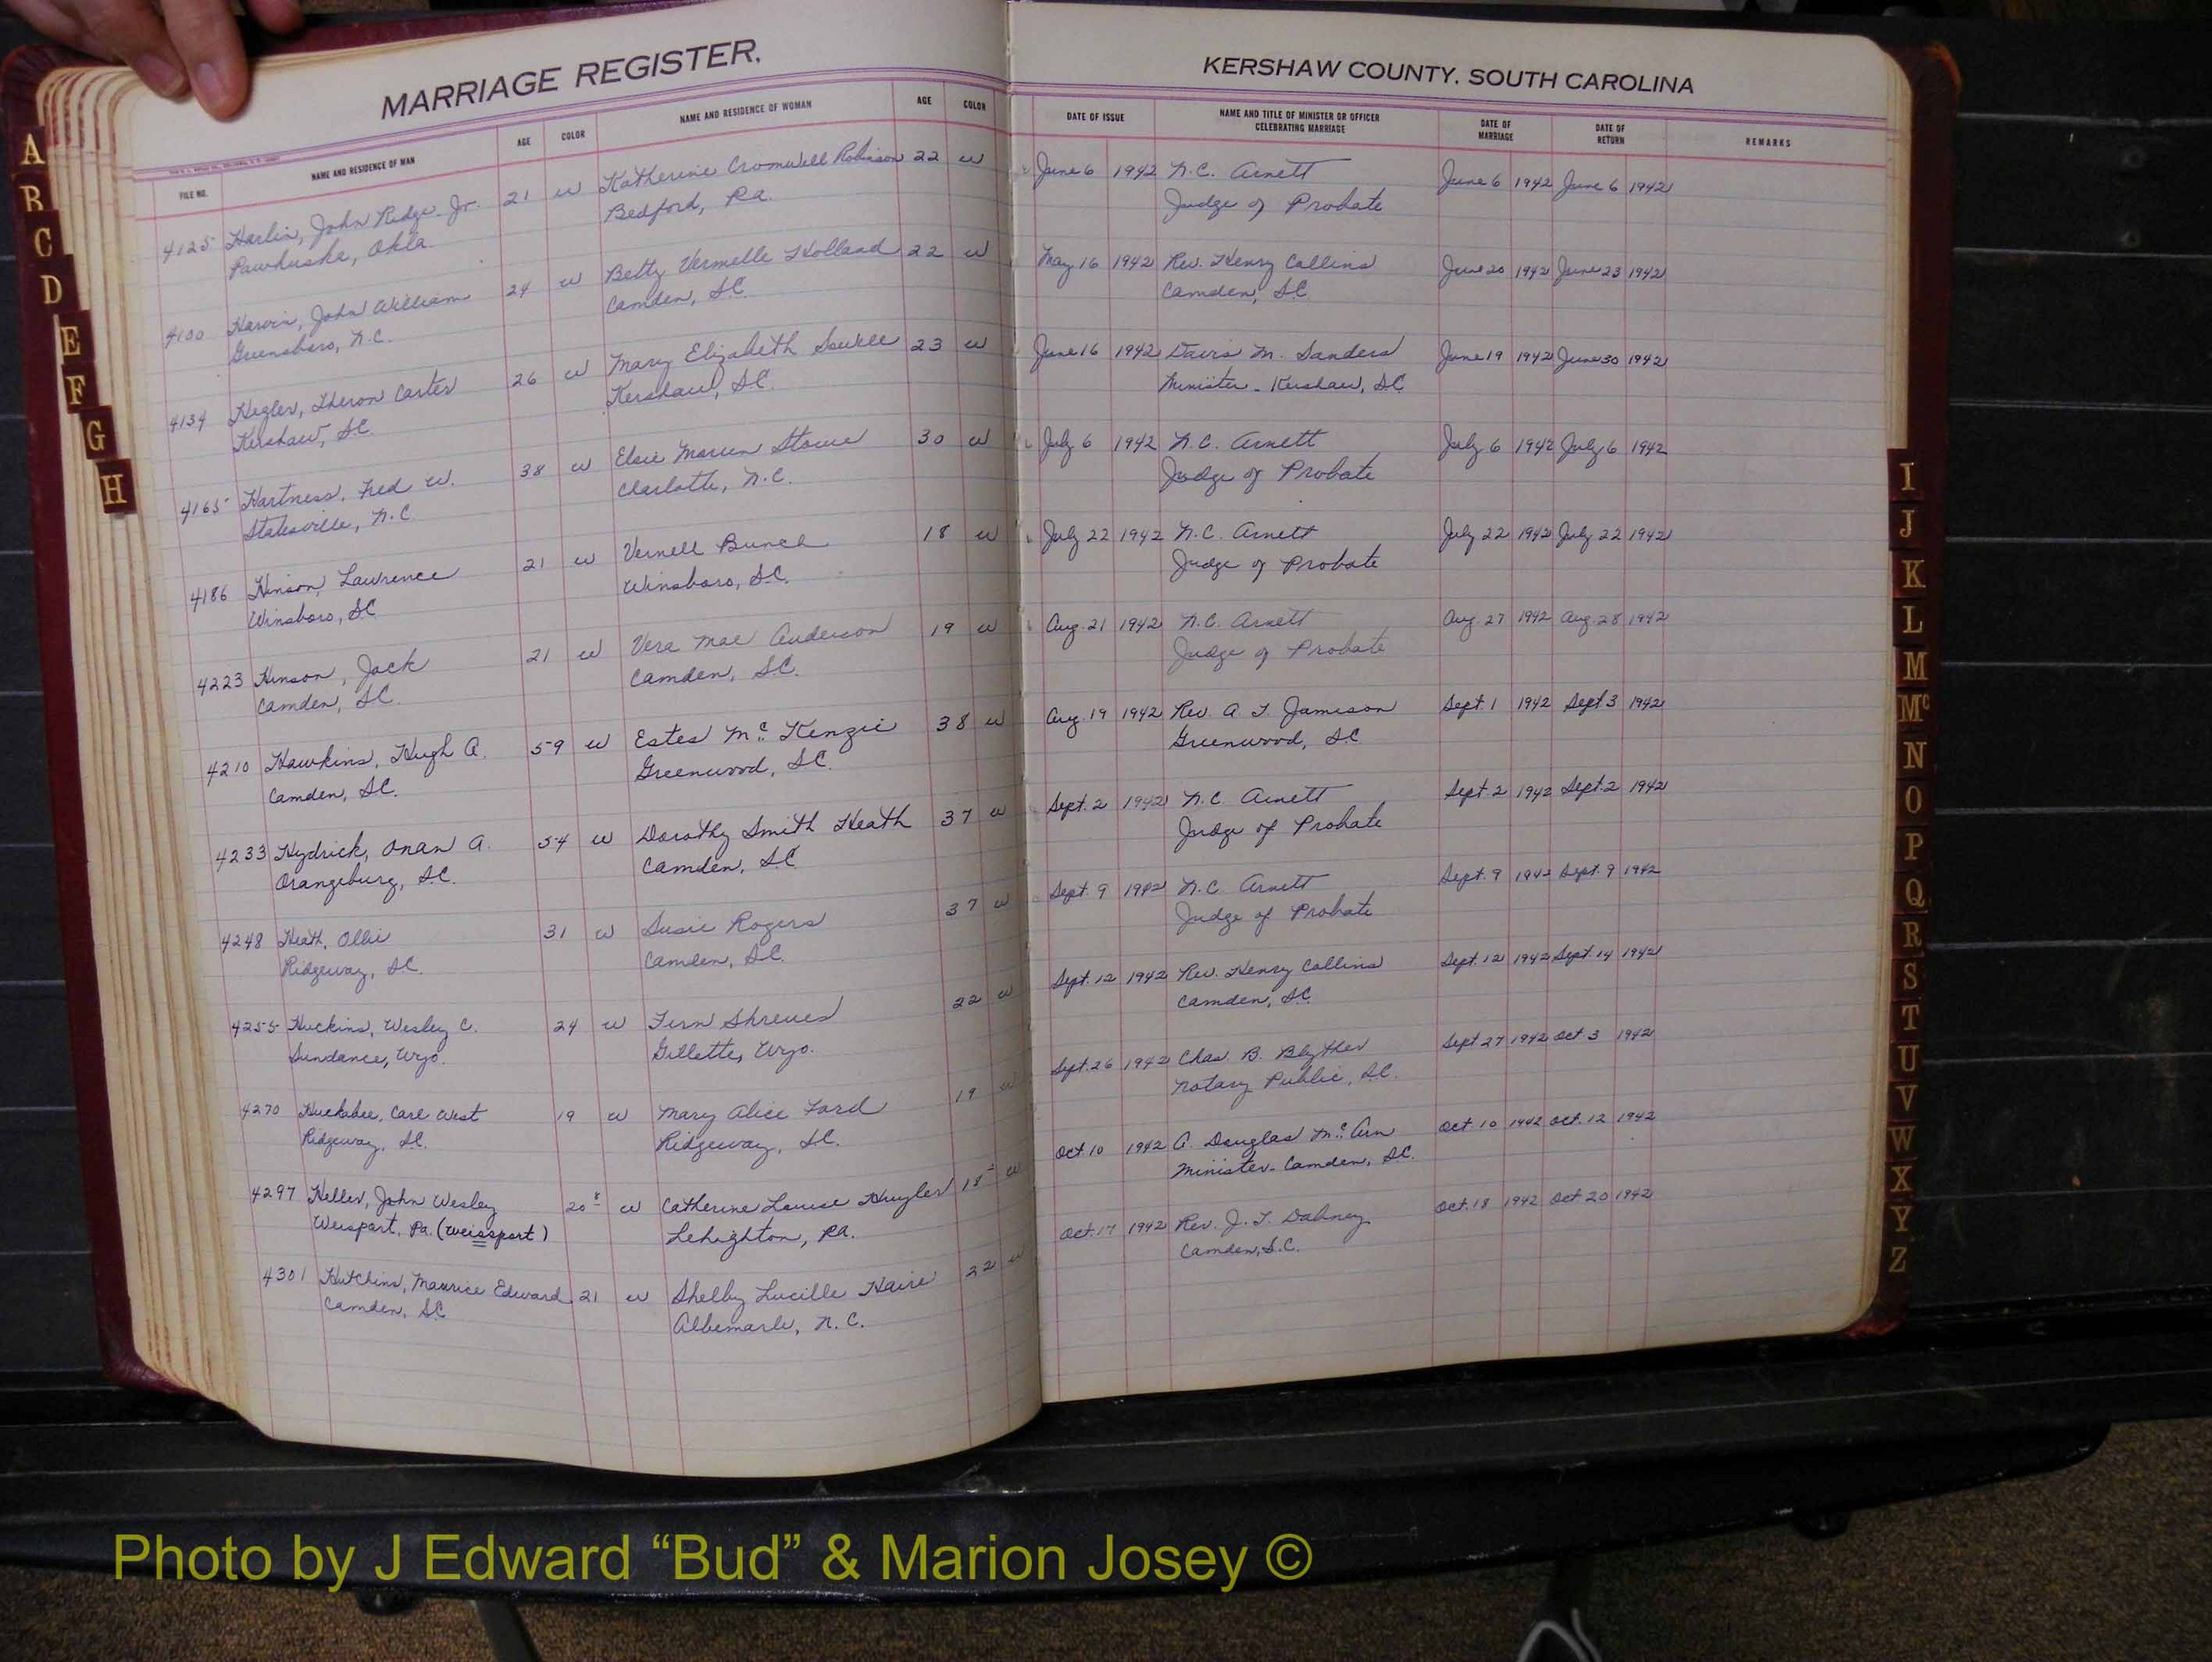 MARRIAGE REGISTER.
FILE NO. NAME AND RESIDENCE OF MAN AGE COLOR NAME AND RESIDENCE OF WOMAN AGE COLOR
4125 Harlin, John Ridge Jr. 21 w Katherine Cromwell Robinson 22 w
Pawhuska, Okla. Bedford, Pa.
4100 Harvin, John William 24 w Betty Vermelle Holland 22 w
Greensboro, N.C. Camden, S.C.
4134 Hegler, Theron Carter 26 w Mary Elizabeth Sowell 23 w
Kershaw, S.C. Kershaw, S.C.
4165 Hartness, Fred W. 38 w Elsie Stowe 30 w
Statesville, N.C. Charlotte, N.C.
4186 Hinson, Lawrence 21 w Vernell Bunch 18 w
Winsboro, S.C. Winsboro, S.C.
4223 Hinson, Jack 21 w Vera Mae Anderson 19 w
Camden, S.C. Camden, S.C.
4210 Hawkins, Hugh A. 59 w Estes McKenzie 38 w
Camden, S.C. Greenwood, S.C.
4233 Hydrick, Onan A. 54 w Dorothy Smith Heath 37 w
Orangeburg, S.C. Camden, S.C.
4248 Heath, Ollie 31 w Susie Rogers 37 w
Ridgeway, S.C. Camden, S.C.
4255 Huckins, Wesley C. 24 w Fern Shreves 22 w
Sundance, Wyo. Gillette, Wyo.
4270 Huckabee, Carl West 19 w Mary Alice Ford 19 w
Ridgeway, S.C. Ridgeway, S.C.
4297 Heller, John Wesley 20 w Catherine Louise Huyler 18 w
Weisport, Pa. (Weissport) Lehighton, Pa.
4301 Hutchins, Maurice Edward 21 w Shelby Lucille Haire 22 w
Camden, S.C. Albemarle, N.C.
KERSHAW COUNTY, SOUTH CAROLINA
DATE OF ISSUE NAME AND TITLE OF MINISTER OR OFFICER CELEBRATING MARRIAGE DATE OF MARRIAGE DATE OF RETURN REMARKS
June 6 1942 N.C. Arnett June 6 1942 June 6 1942
Judge of Probate
May 16 1942 Rev. Henry Collins June 20 1942 June 23 1942
Camden, S.C.
June 16 1942 Davis M. Sanders June 19 1942 June 30 1942
Minister - Kershaw, S.C.
July 6 1942 N.C. Arnett July 6 1942 July 6 1942
Judge of Probate
July 22 1942 N.C. Arnett July 22 1942 July 22 1942
Judge of Probate
Aug. 21 1942 N.C. Arnett Aug. 27 1942 Aug. 28 1942
Judge of Probate
Aug. 19 1942 Rev. A. T. Jamison Sept. 1 1942 Sept 3 1942
Greenwood, S.C.
Sept. 2 1942 N.C. Arnett Sept. 2 1942 Sept. 2 1942
Judge of Probate
Sept. 9 1942 N.C. Arnett Sept. 9 1942 Sept. 9 1942
Judge of Probate
Sept. 12 1942 Rev. Henry Collins Sept. 12 1942 Sept. 14 1942
Camden, S.C.
Sept. 26 1942 Chas. B. Blyther Sept 27 1942 Oct. 3 1942
Notary Public, S.C.
Oct. 10 1942 A. Douglas McArn Oct 10 1942 Oct. 12 1942
Minister - Camden, S.C.
Oct. 17 1942 Rev. J. T. Dabney Oct. 18 1942 Oct 20 1942
Camden, S.C.
A
B
C
D
E
F
G
H
I
J
K
L
M
Mc
N
O
P
Q
R
S
T
U
V
W
X
Y
Z
Photo by J Edward “Bud” & Marion Josey ©